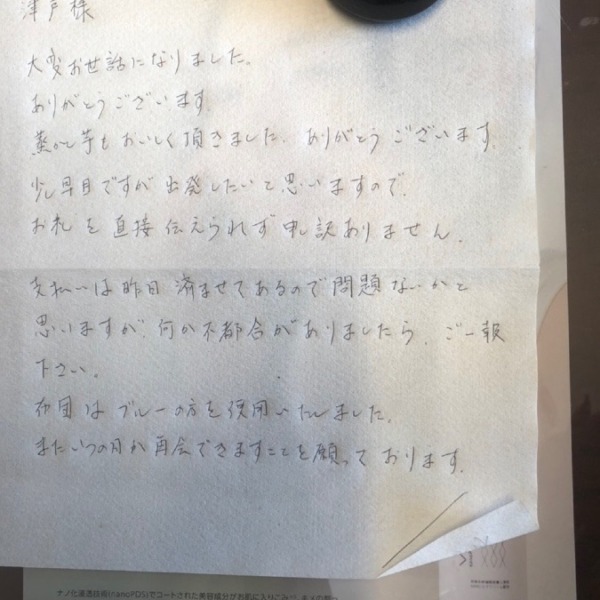 津戸様
大変お世話になりました。
ありがとうございます。
蒸かし芋もおいしく頂きました。ありがとうございます。
少し早目ですが出発したいと思いますので、
お礼を直接伝えられず申し訳ありません。
支払いは昨日済ませてあるので問題ないかと
思いますが、何か不都合がありましたら、ご一報
下さい。
布団はブルーの方を使用いたしました。
またいつの日か再会できますことを願っております。
ナノ化浸透技術(nanoPDS)でコートされた美容成分がお肌に入りこみ